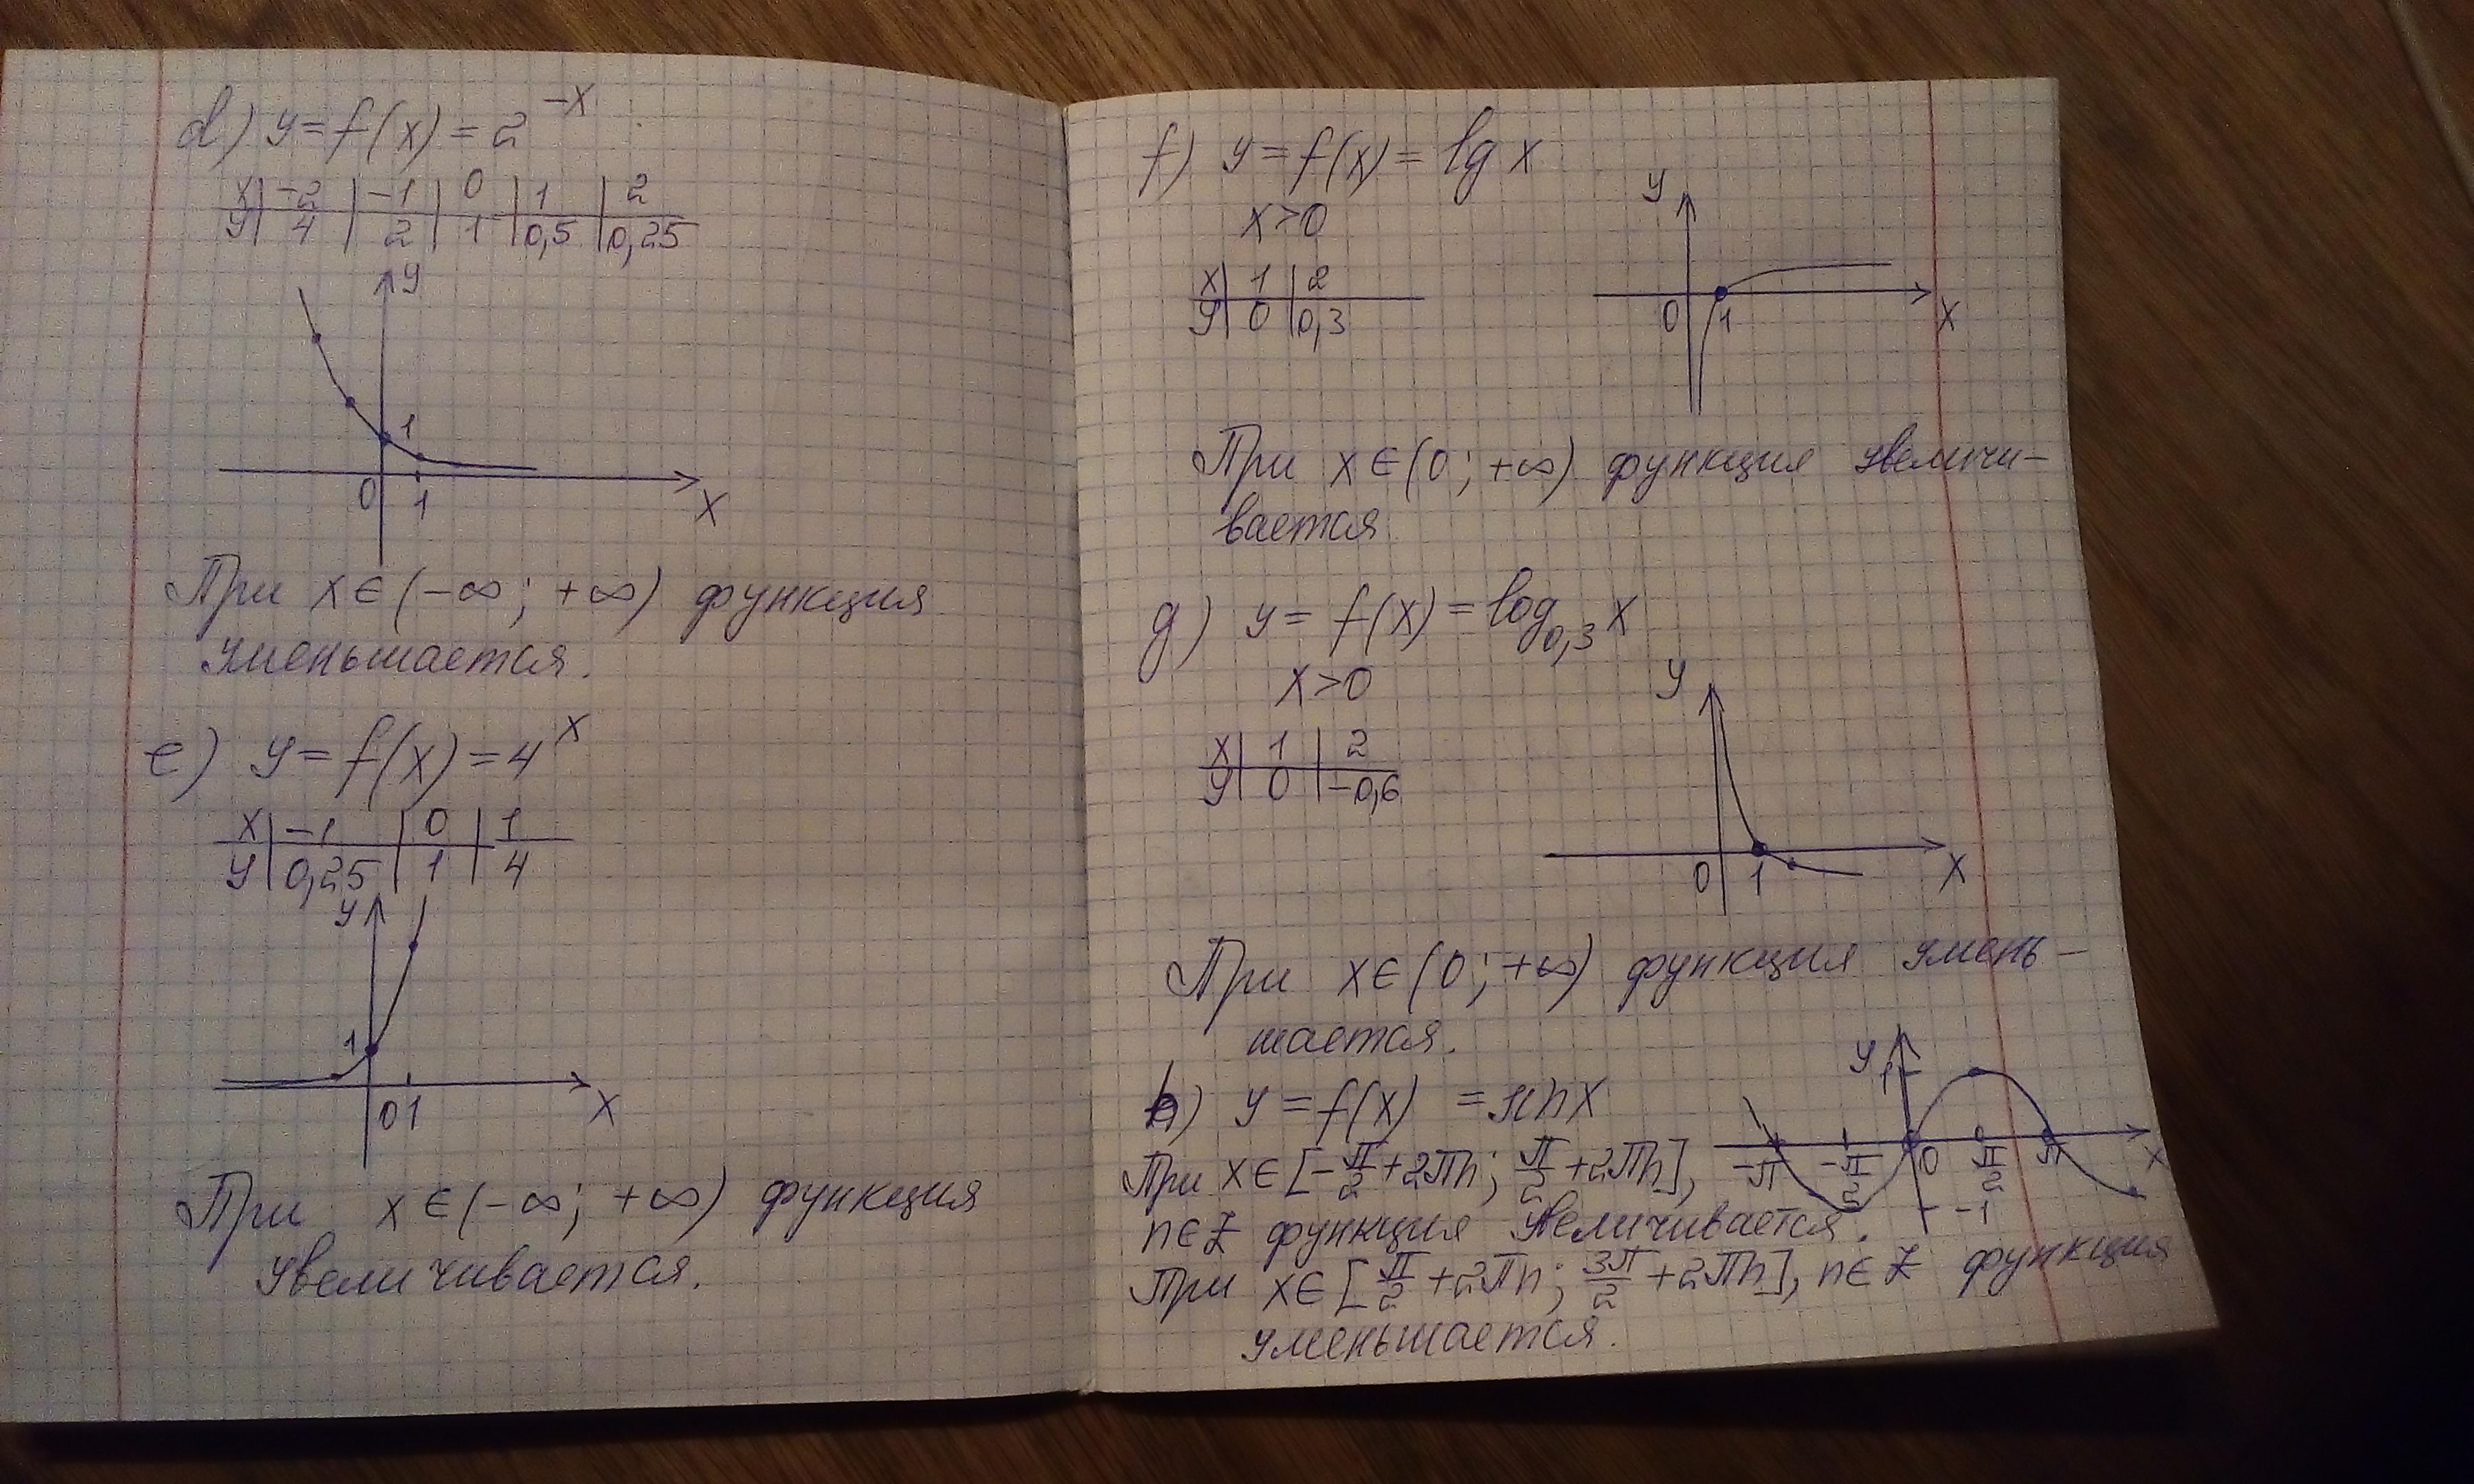 d) y = f(x) = 2^{-x}
x | -2 | -1 | 0 | 1 | 2
y | 4 | 2 | 1 | 0,5 | 0,25
y
1
0 1 x
При x ∈ (-∞; +∞) функция
уменьшается.
e) y = f(x) = 4^x
x | -1 | 0 | 1
y | 0,25 | 1 | 4
y
1
0 1 x
При x ∈ (-∞; +∞) функция
увеличивается.
f) y = f(x) = lg x
x > 0
x | 1 | 2
y | 0 | 0,3
y
0 1 x
При x ∈ (0; +∞) функция увеличи-
вается
g) y = f(x) = log_{0,3} x
x > 0
x | 1 | 2
y | 0 | -0,6
y
0 1 x
При x ∈ (0; +∞) функция умень-
шается.
h) y = f(x) = sin x
y
1
-π -π/2 0 π/2 π x
-1
При x ∈ [-π/2 + 2πn; π/2 + 2πn],
n ∈ Z функция увеличивается.
При x ∈ [π/2 + 2πn; 3π/2 + 2πn], n ∈ Z функция
уменьшается.